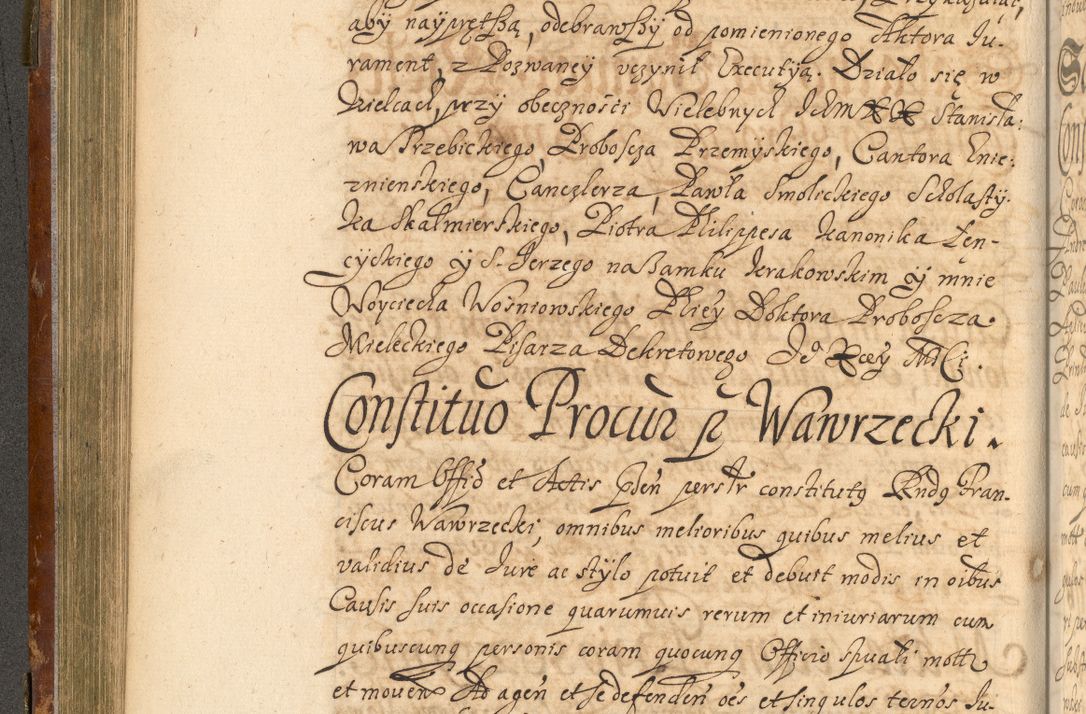 aby nayprętszą, odebrawszy od pomienionego Aktora Iu-
rament, z Pozwaney uczynił Executyą. Działo się w
Kielcach, przy obecznosci Wielebnych Ichm XX Stanisła:
wa Przebickiego, Proboscza Przemyskiego, Cantora Gnie:
znienskiego, Canczlerza, Pawła Smolickiego Scholasty-
ka Skalmierskiego, Piotra Philippesa Kanonika Łen-
cyckiego y S. Jerzego na Zamku Krakowskim y mnie
Woyciecha Wosniowskiego Phiey Doktora Proboscza
Mieleckiego Pisarza Dekretowego
Constituo Procur p Wawrzecki.
Coram Offo et Actis pñ persłr constitutq Rndq Fran-
ciscus Wawrzecki, omnibus melioribus quibus melius et
validius de Iure ac stylo potuit et debuit modis in oibus
Causis suis occasione quarumuis rerum et iniuriarum cum
quibuscunq personis coram quocunq Officio spuali mott
et mouen Ad agen et se defenden oes et singulos ternos Iu-